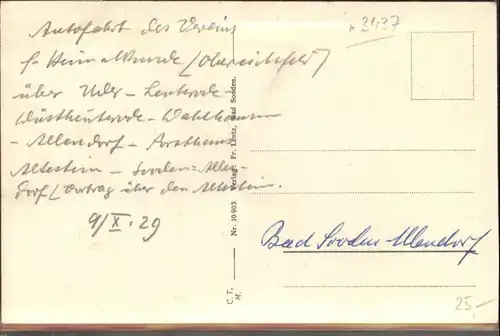 Autofahrt des Vereins
f. Heimatkunde (Obereichsfeld)
über Uder - Lenterode
Wüstheuterode - Wahlhausen
- Allendorf - Forsthaus
Altestein - Sooden=Allen-
dorf (Vortrag über den Altestein.
9/X. 29
x 3437
Nr. 10 903 Verlag: Fr. Lentz, Bad Sooden.
C. T.
M.
Bad Sooden Allendorf
25,-